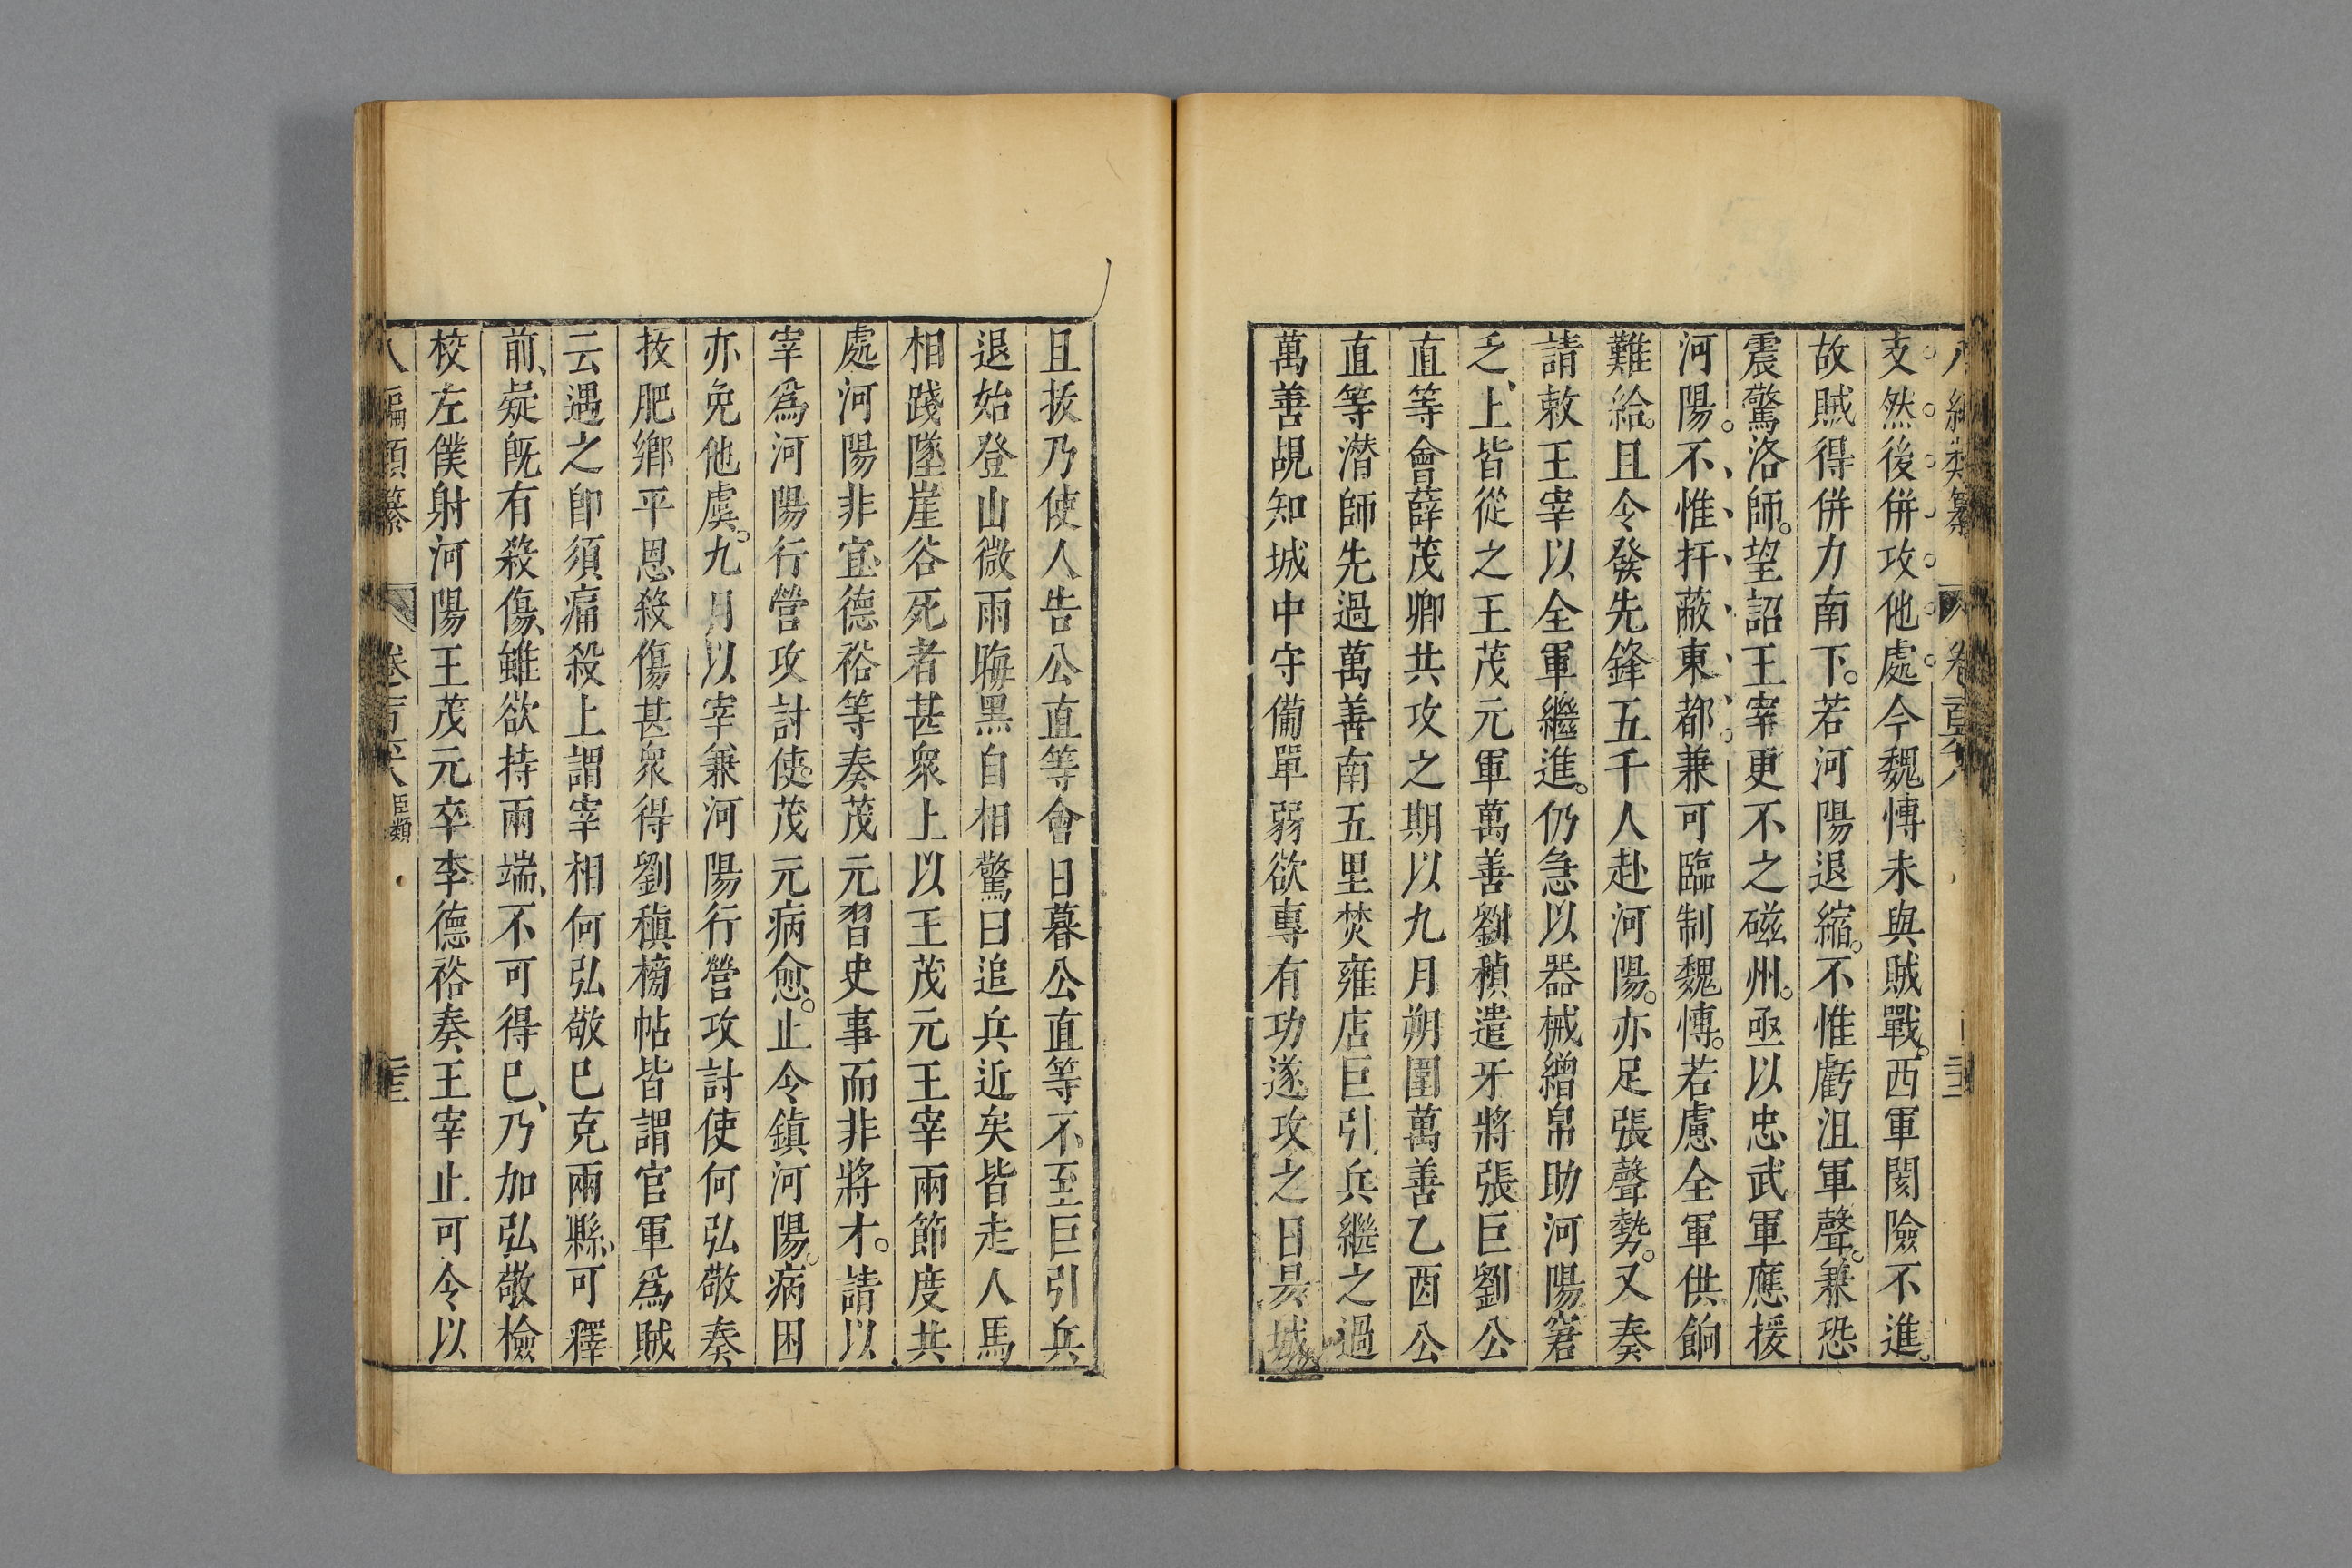 支然後併攻他處今魏愽未與賊戰西軍閡險不進
故賊得併力南下若河陽退縮不惟虧沮軍聲兼恐
震驚洛師望詔王宰更不之磁州亟以忠武軍應援
河陽不惟扞蔽東都兼可臨制魏愽若慮全軍供餉
難給且令發先鋒五千人赴河陽亦足張聲勢又奏
請敕王宰以全軍繼進仍急以器械繒帛助河陽窘
乏上皆從之王茂元軍萬善劉稹遣牙將張巨劉公
直等會薛茂卿共攻之期以九月朔圍萬善乙酉公
直等潛師先過萬善南五里焚雍店巨引兵繼之過
萬善覘知城中守備單弱欲專有功遂攻之日昃城
且拔乃使人告公直等會日暮公直等不至巨引兵
退始登山微雨晦黑自相驚曰追兵近矣皆走人馬
相踐墜崖谷死者甚衆上以王茂元王宰兩節度共
處河陽非宜德裕等奏茂元習史事而非將才請以
宰爲河陽行營攻討使茂元病愈止令鎮河陽病困
亦免他虞九月以宰兼河陽行營攻討使何弘敬奏
拔肥鄉平恩殺傷甚衆得劉稹榜帖皆謂官軍爲賊
云遇之卽須痛殺上謂宰相何弘敬已克兩縣可釋
前疑旣有殺傷雖欲持兩端不可得已乃加弘敬檢
校左僕射河陽王茂元卒李德裕奏王宰止可令以
八編類纂 卷一百六 臣類